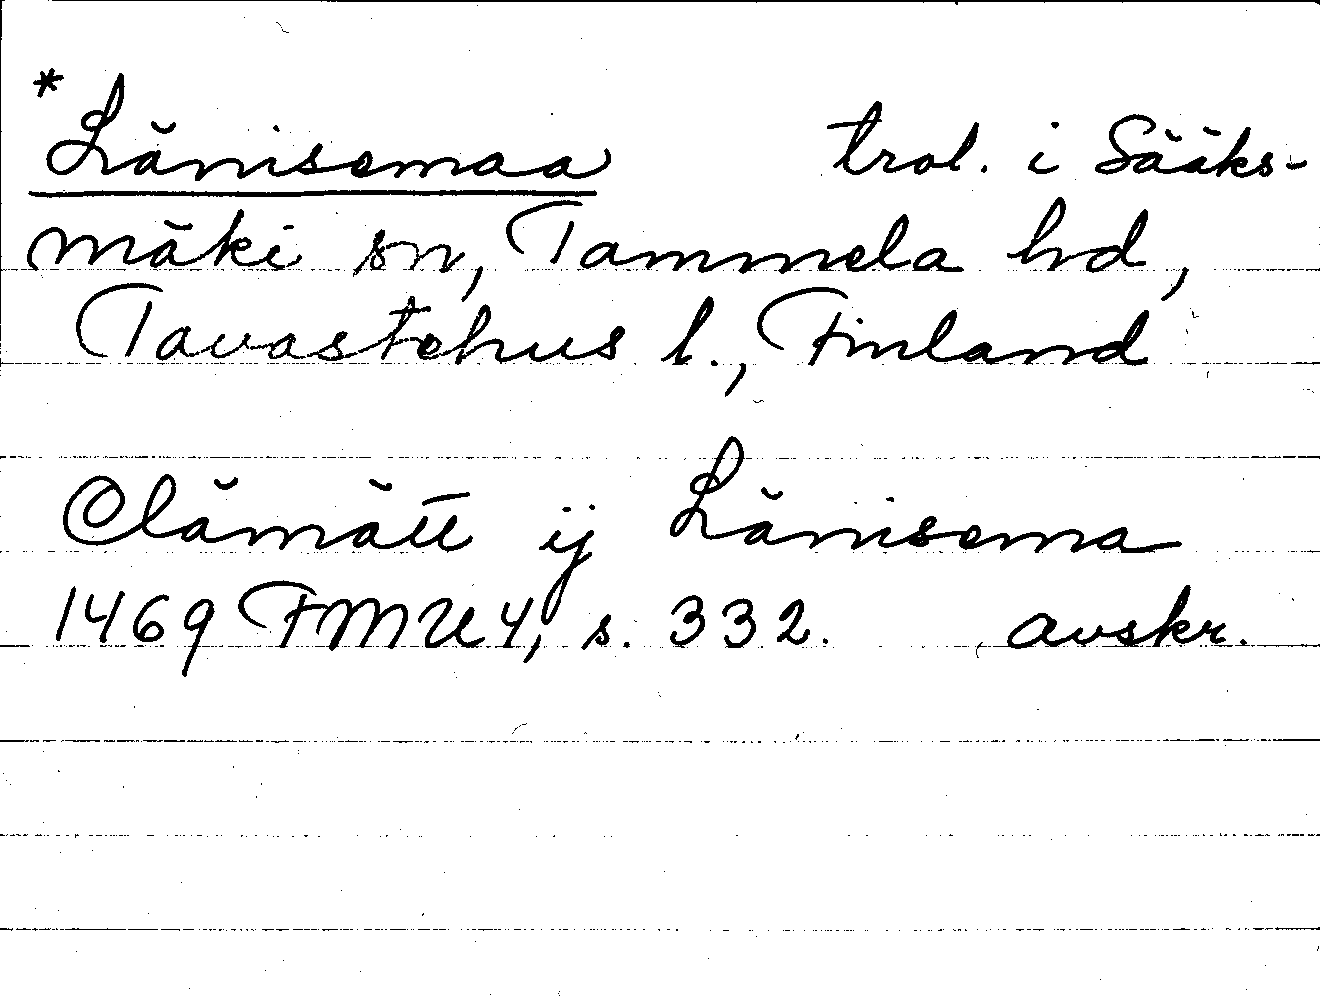 *Länisemaa trol. i Sääks-
mäki sn, Tammela hd,
Tavastehus l., Finland
Clämätt ij Länisema
1469 FMU 4, s. 332. avskr.